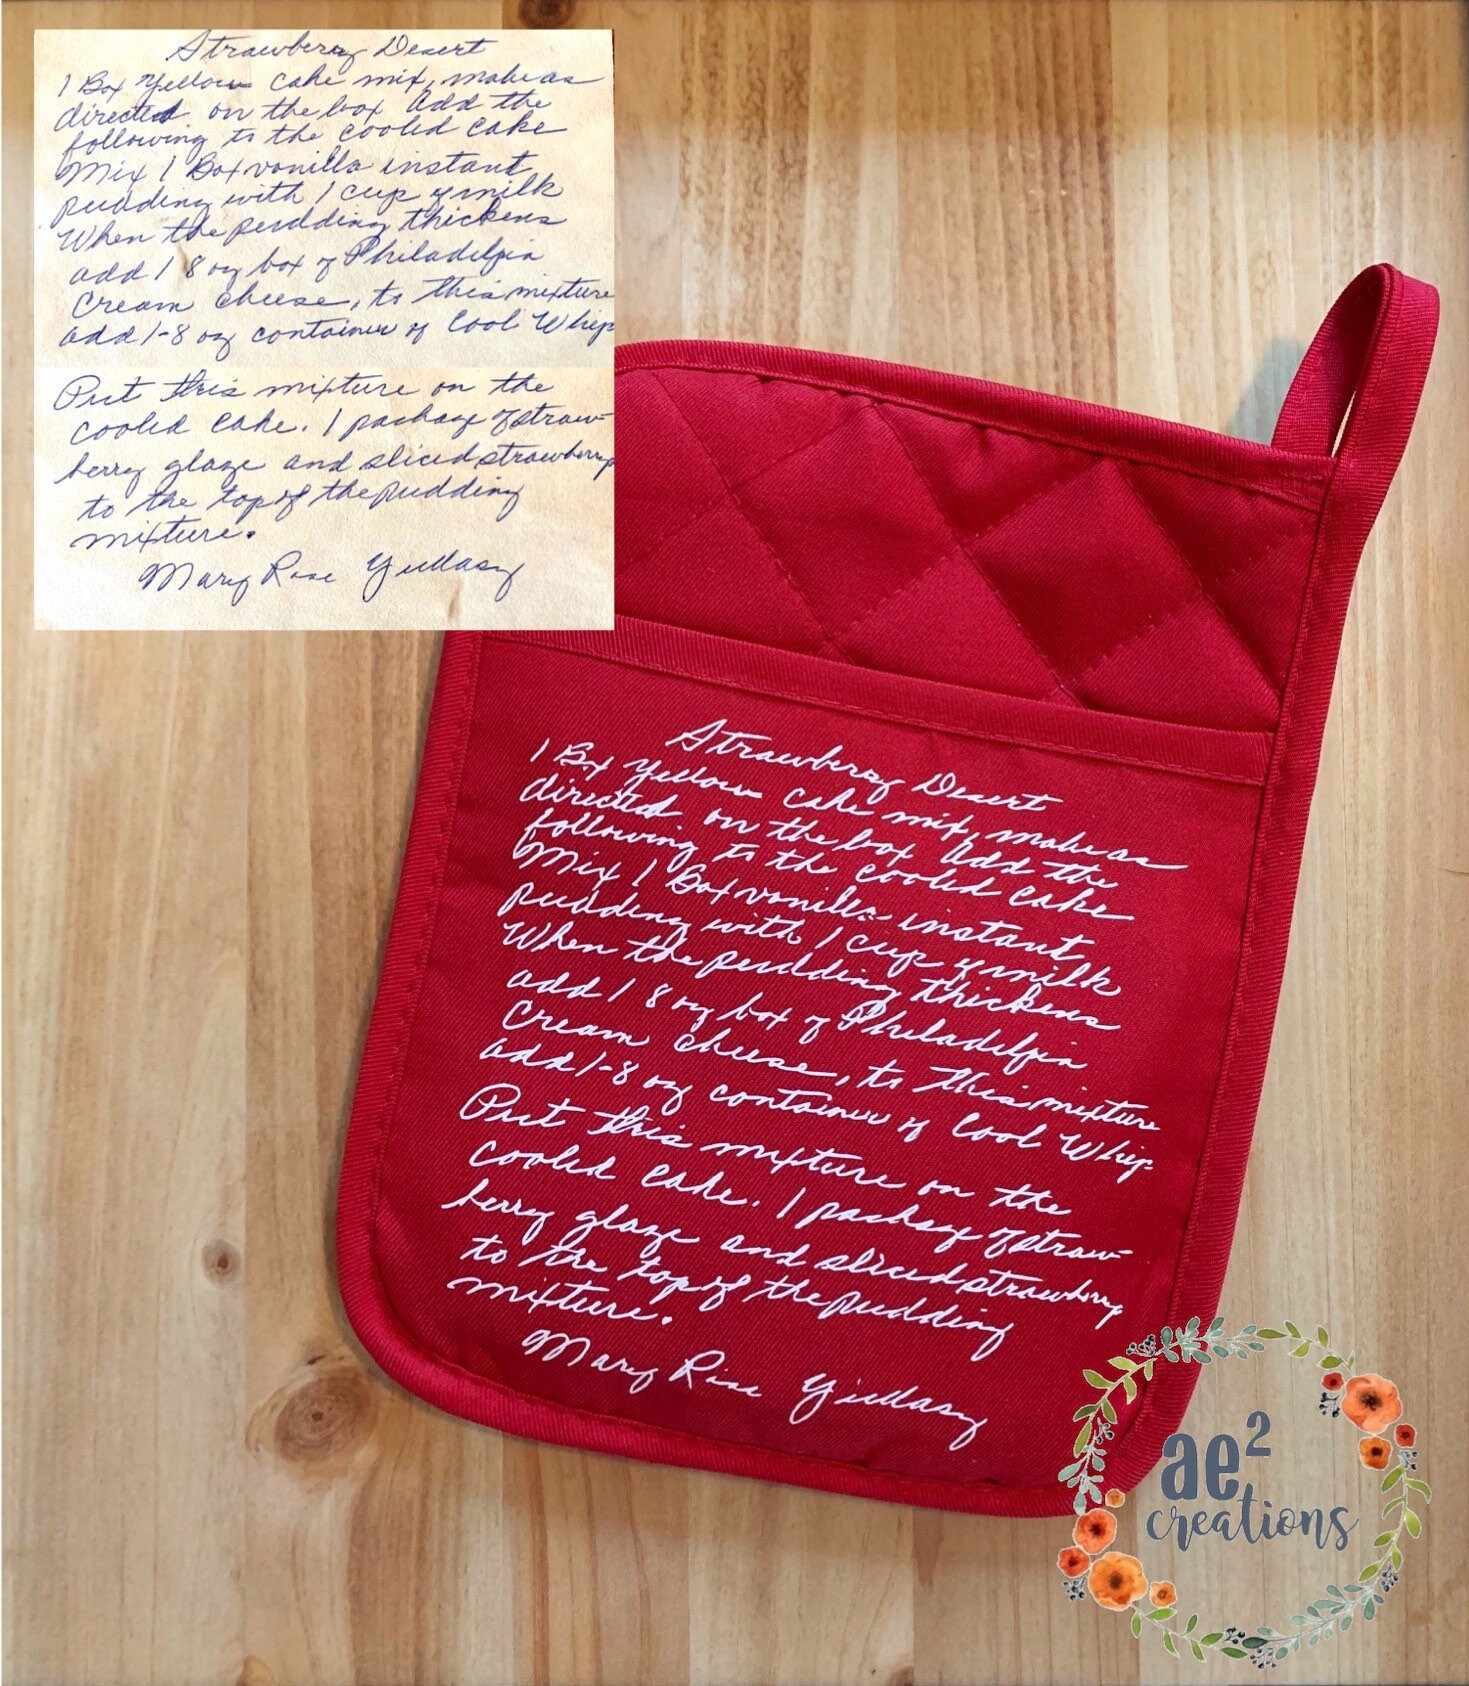 Strawberry Desert
1 Box Yellow cake mix, make as
directed on the box Add the
following to the cooled cake
Mix 1 Box vanilla instant
pudding with 1 cup of milk
When the pudding thickens
add 1 8 oz box of Philadelpia
Cream cheese, to this mixture
add 1-8 oz container of Cool Whip
Put this mixture on the
cooled cake. 1 package of straw-
berry glaze and sliced strawberry
to the top of the pudding
mixture.
Mary Rose
Strawberry Desert
1 Box Yellow cake mix, make as
directed on the box Add the
following to the cooled cake
Mix 1 Box vanilla instant
pudding with 1 cup of milk
When the pudding thickens
add 1 8 oz box of Philadelpia
Cream cheese, to this mixture
add 1-8 oz container of Cool Whip
Put this mixture on the
cooled cake. 1 package of straw-
berry glaze and sliced strawberry
to the top of the pudding
mixture.
Mary Rose
ae²
creations